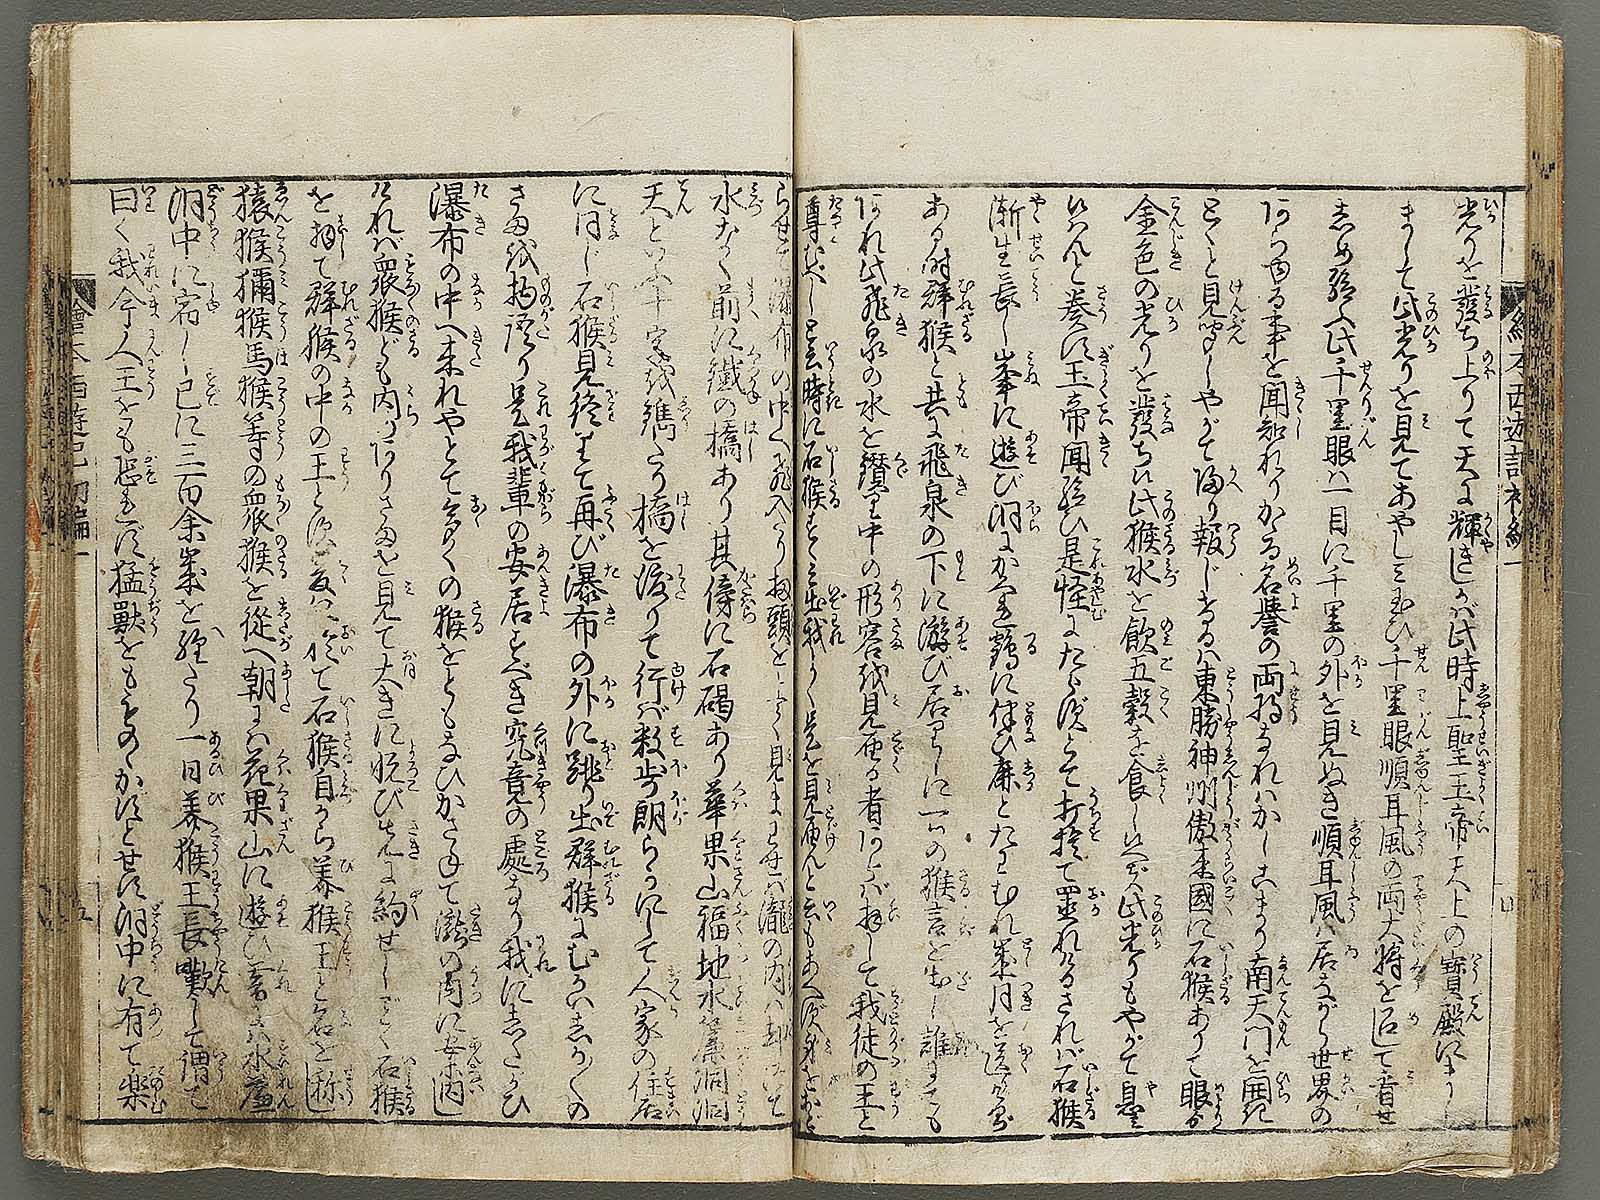 絵本西遊記初編一
光りを發ち上りて天に輝きしが此時上聖玉帝天上の寶殿に
まして此光りを見てあやしミ玉ひ千里眼順耳風の両大将を召して看せ
しめ給ふ此千里眼ハ一目に千里の外を見ぬき順耳風ハ居ながら世界の
あらゆる事を聞知れりかゝる名誉の両将なれハかしこまり南天門を開き
見やがて帰り報じけるハ東勝神洲傲来國に石猴ありて眼より
金色の光りを發ち此猴水を飲五穀を食し此光りもやがて息
と奏す玉帝聞給ひ是怪にたらずとて打捨て置れけるされバ石猴
漸生長し峯に遊び洞にかくれ鶴に伴ひ麻とたハむれ歳月を送り
ある時群猴と共に飛泉の下に游び居に一ツの猴言を出し誰にても
あれ此飛泉の水を鑽り中の形容を見届る者あらバ拝して我徒の王と
尊むべしと云時に石猴すゝミ出我よく是を見届んと云もあへず身をおど
らせて瀑布の中へ飛入り頭を見まハせバ瀧の内ハ
水なく前に鐵の橋あり其傍に石碣あり華果山福地水簾洞洞
天といふ十字を鐫たり橋を渡りて行バ数歩朗らかにして人家の住居
に同じ石猴見終りて再び瀑布の外に跳り出群猴にむかひしか／＼の
さまを物語り是我輩の安居すべき究竟の處なり我にしたがひ
瀑布の中へ来れやとて多くの猴をともなひかさねて瀧の内に案内し
けれバ衆猴ども内のありさまを見て大きに悦び先に約せしごとく石猴
を拝て群猴の中の王と定て石猴自から美猴王と名を称し
猿猴獼猴馬猴等の衆猴を從へ朝にハ花果山に遊び暮にハ水簾
洞中に宿し已に三百余歳を經たり一日美猴王長歎して謂て
曰く我今人王をも恐れず猛獸をも

洞中に有て楽
繪本西遊記初編一
五